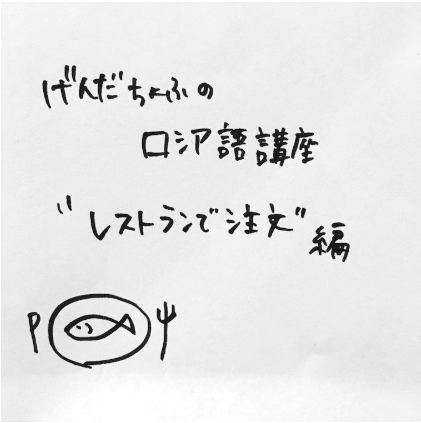 げんだちょふの
ロシア語講座
"レストランで注文"編